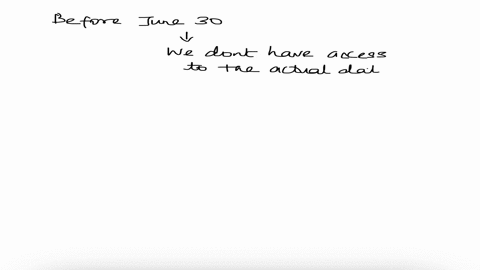 Before June 30
↓
We dont have access
to the actual dat